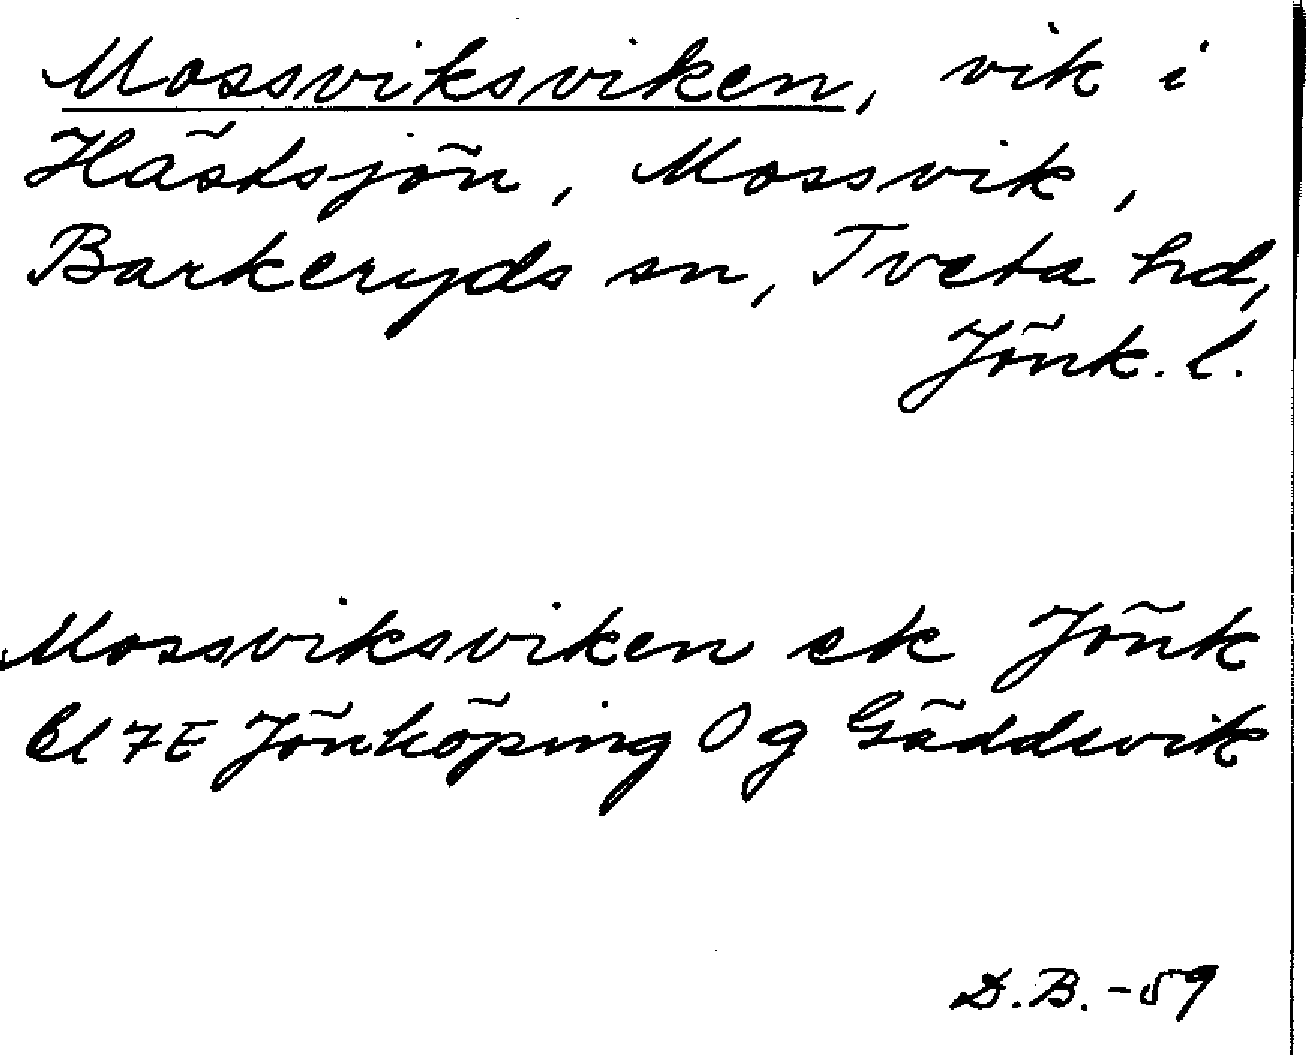 Mossviksviken, vik i
Hästsjön, Mossvik,
Barkeryds sn, Tveta hd,
Jönk. l.
Mossviksviken ek Jönk
Bl 7E Jönköping Og Gäddevik
D.B. -59